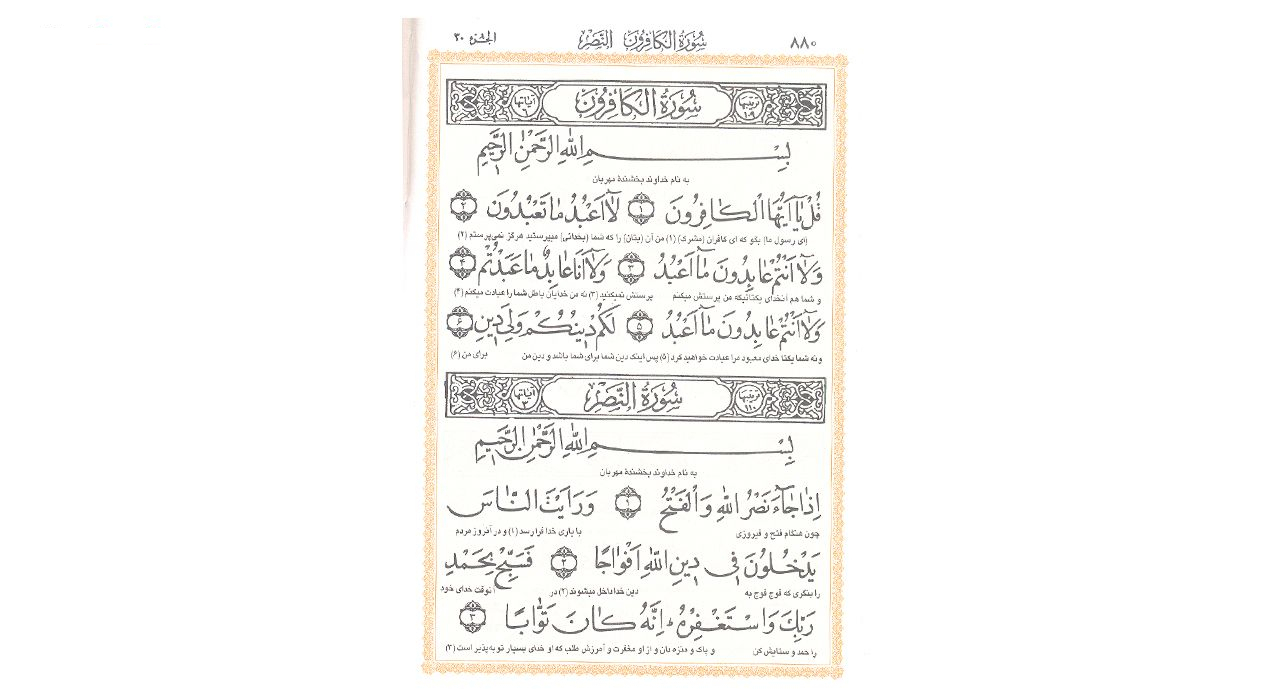 ۸۸۰ سُورَةُ الكَافِرُونَ النَّصْر الجزء ۳۰
ترتيبها ۱۰۹ سُورَةُ الْكَافِرُونَ آياتها ۶
بِسْمِ اللهِ الرَّحْمٰنِ الرَّحِيمِ
به نام خداوند بخشندهٔ مهربان
قُلْ يَآ اَيُّهَا الْكَافِرُونَ ۱ لَآ اَعْبُدُ مَا تَعْبُدُونَ ۲
(ای رسول ما) بگو که ای کافران (مشرک) (۱) من آن (بتان) را که شما (بخدائی) میپرستید هرگز نمی‌پرستم (۲)
وَلَآ اَنْتُمْ عَابِدُونَ مَآ اَعْبُدُ ۳ وَلَآ اَنَا عَابِدٌ مَا عَبَدْتُمْ ۴
و شما هم آنخدای یکتائیکه من پرستش میکنم پرستش نمیکنید (۳) نه من خدایان باطل شما را عبادت میکنم (۴)
وَلَآ اَنْتُمْ عَابِدُونَ مَآ اَعْبُدُ ۵ لَكُمْ دِينُكُمْ وَلِيَ دِينِ ۶
و نه شما یکتا خدای معبود مرا عبادت خواهید کرد (۵) پس اینک دین شما برای شما باشد و دین من برای من (۶)
ترتيبها ۱۱۰ سُورَةُ النَّصْرِ آياتها ۳
بِسْمِ اللهِ الرَّحْمٰنِ الرَّحِيمِ
به نام خداوند بخشندهٔ مهربان
اِذَا جَآءَ نَصْرُ اللهِ وَالْفَتْحُ ۱ وَرَاَيْتَ النَّاسَ
چون هنگام فتح و فیروزی با یاری خدا فرا رسد (۱) و در آنروز مردم
يَدْخُلُونَ فِي دِينِ اللهِ اَفْوَاجًا ۲ فَسَبِّحْ بِحَمْدِ
را بنگری که فوج فوج به دین خدا داخل میشوند (۲) در آنوقت خدای خود
رَبِّكَ وَاسْتَغْفِرْهُ اِنَّهُ كَانَ تَوَّابًا ۳
را حمد و ستایش کن و پاک و منزه دان و از او مغفرت و آمرزش طلب که او خدای بسیار توبه‌پذیر است (۳)